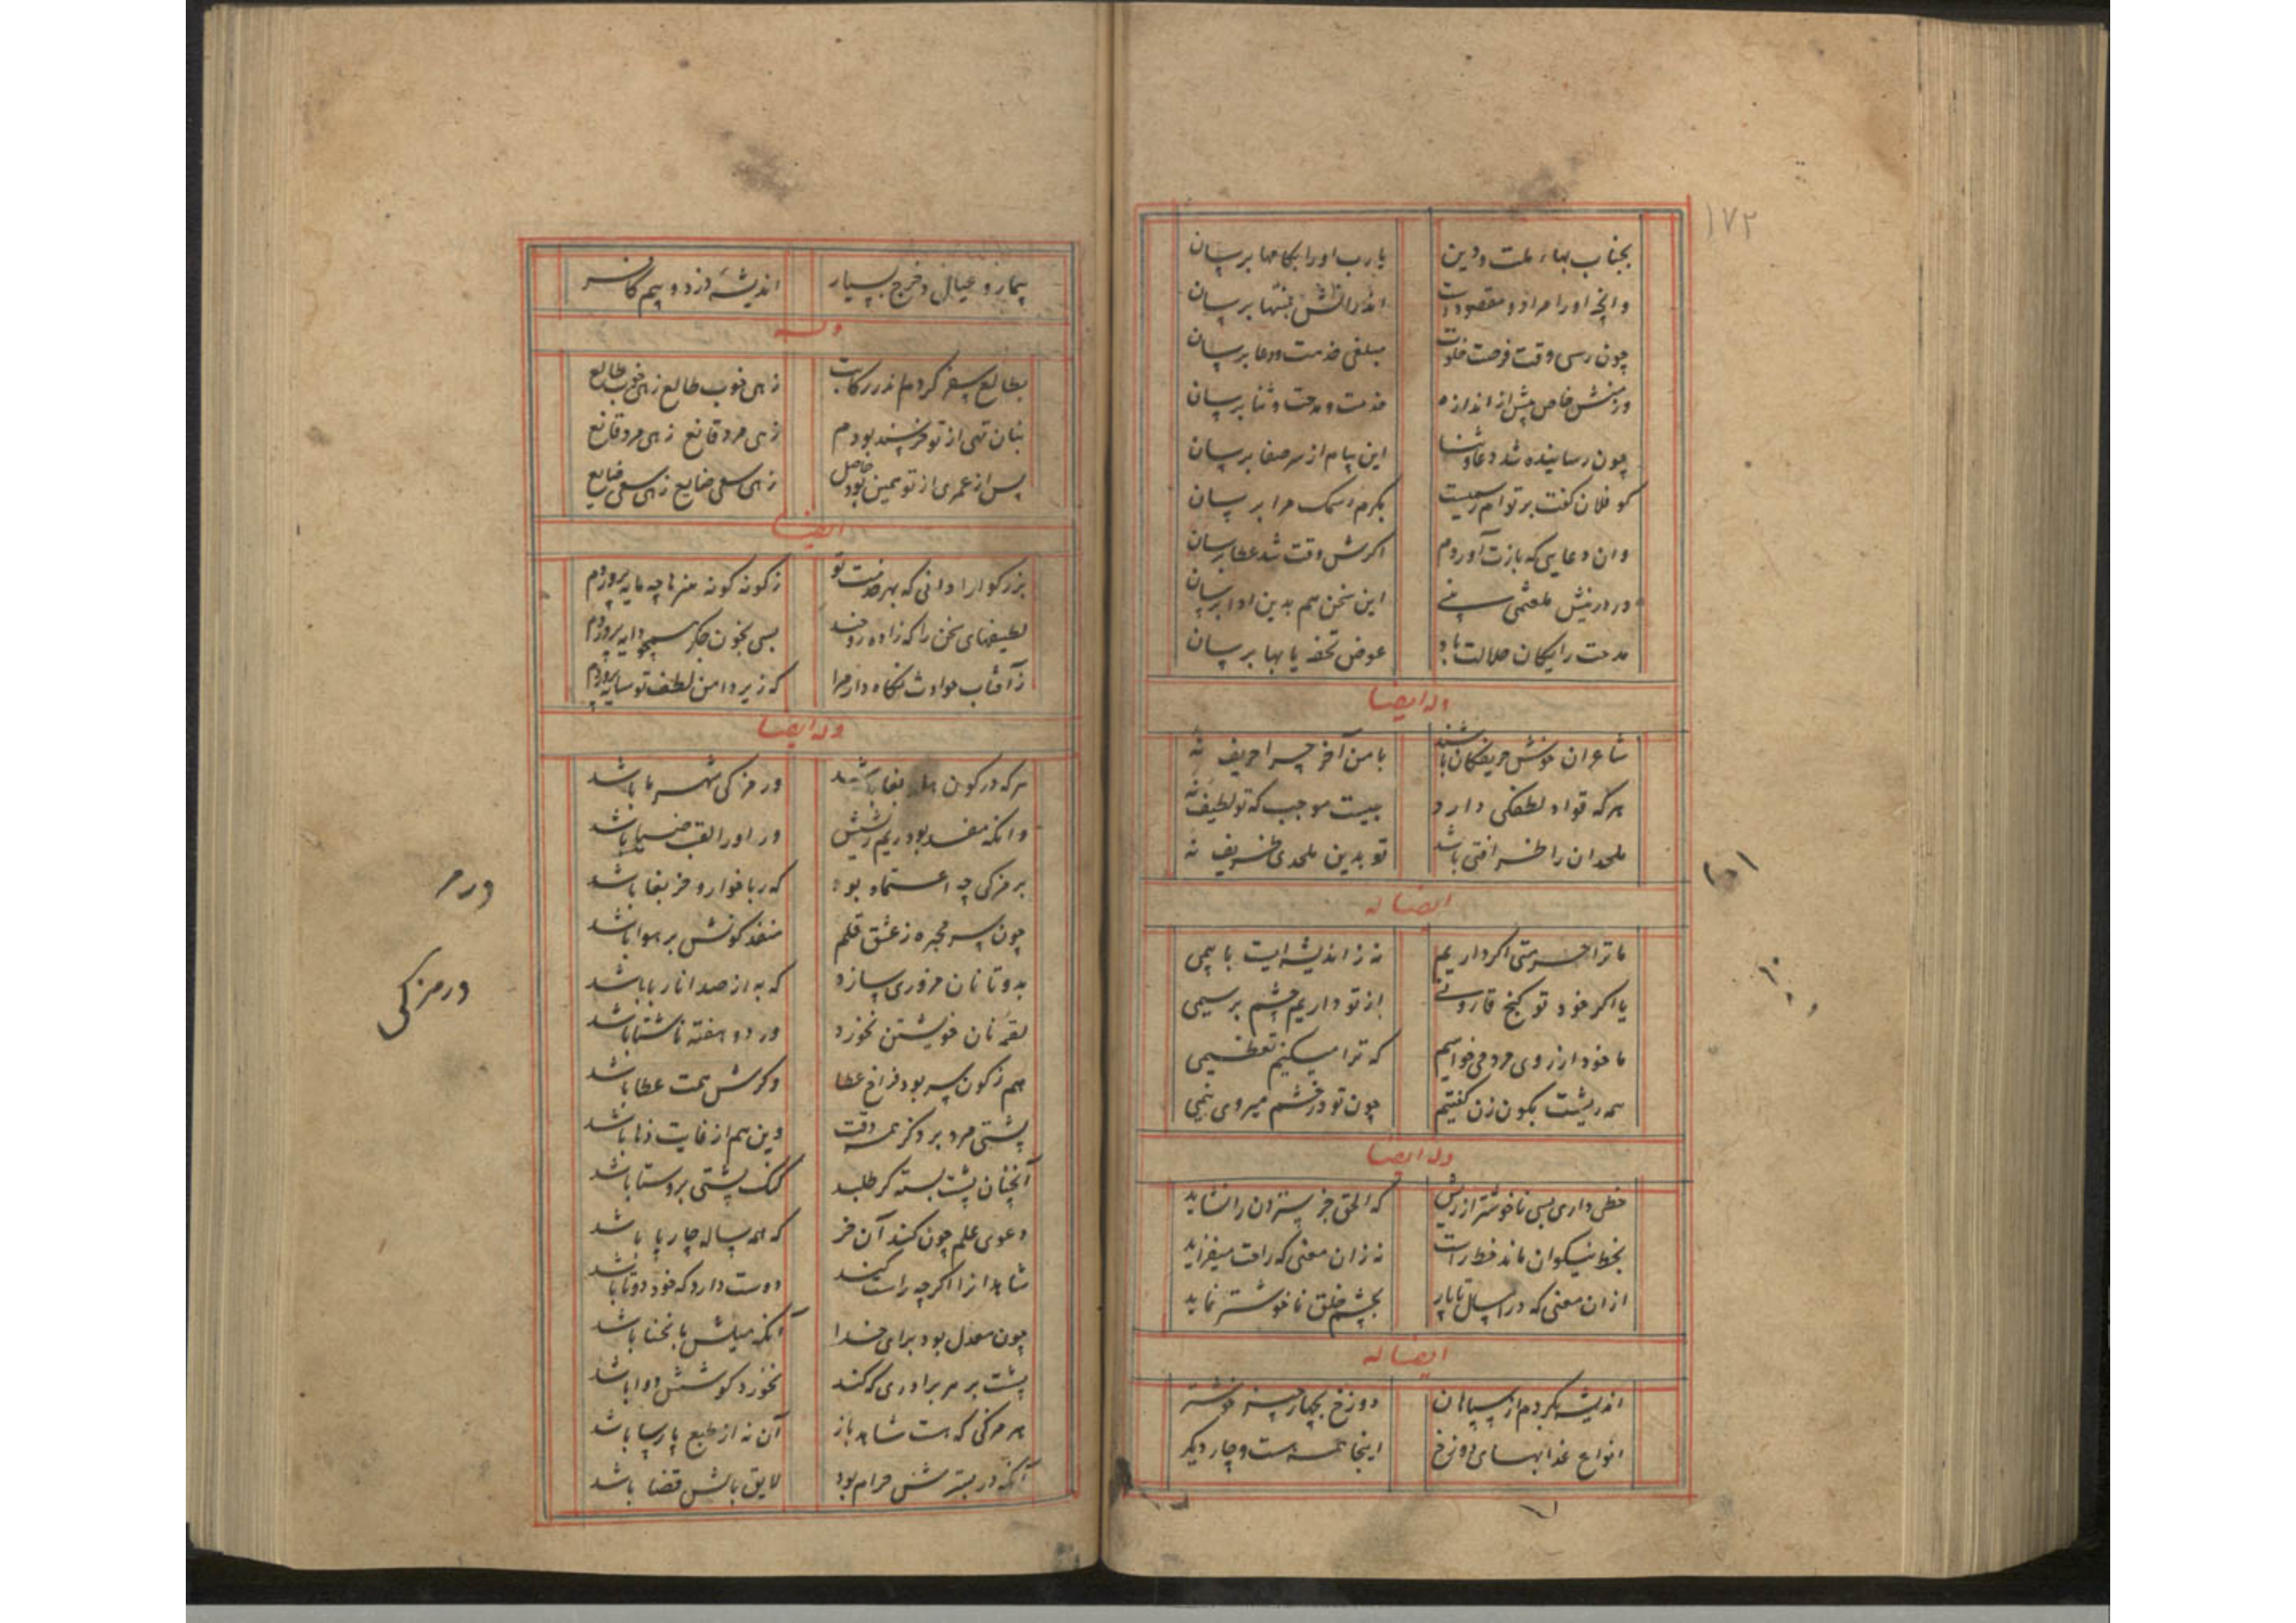 ۱۷۲
بجناب بهاء ملت و دین یا رب او را بکامها برسان
وانچه او را مراد و مقصودست
چون رسی وقت فرصت خلوت مبلغی خدمت و دعا برسان
خاص بیش از اندازه خدمت و مدحت و ثنا برسان
چون رسانیده شد دعا و ثنا این پیام از سر صفا برسان
کو فلان کفت بر توام رسمیست بکرم رسمک مرا برسان
وان دعایی که بازت آوردم اکرش وقت شد عطا برسان
این سخن هم بدین ادا برسان
مدحت رایکان حلالت باد عوض تحفه یا بها برسان
وله ایضا
شاعران خوش حریفکان باشند با من آخر چرا حریف نهٔ
هرکه قواد لطفکی دارد چیست موجب که تو لطیف نهٔ
ملحدان را ظرافتی باشد تو بدین ملحدی ظریف نهٔ
ایضا له
ما ترا حرمتی اکر داریم نه ز اندیشه ایست یا بیمی
یا اکر خود تو کنج قارونی از تو داریم چشم بر سیمی
ما خود از روی مردمی خواهیم که ترا میکنیم تعظیمی
چون تو در خشم میروی نیمی
وله ایضا
خطی داری بسی ناخوشتر از ریش که الحق جز ستردن را نشاید
بخط نیکوان ماند خطت راست نه زان معنی که راحت میفزاید
ازان معنی که در امسال تا پار بچشم خلق ناخوشتر نماید
ایضا له
اندیشه بکردم از سپاهان دوزخ بچهار چیز خوشتر
انواع عذابهای دوزخ اینجا همه هست و چار دیکر
بیمار و عیال و خرج بسیار اندیشهٔ دزد و بیم کافر
وله
بطالع سفر کردم اندر رکابت زهی خوب طالع زهی خوب طالع
بنان تهی از تو خرسند بودم زهی مرد قانع زهی مرد قانع
پس از عمری از تو همین بود حاصل زهی سعی ضایع زهی سعی ضایع
ایضا
بزرکوارا دانی که بهر خدمت تو ز کونه کونه هنرها چه مایه پروردم
لطیفهای سخن را که زادهٔ روحند بسی بخون جکر همچو دایه پروردم
ز آفتاب حوادث نکاه دار مرا که زیر دامن لطف تو سایه پروردم
وله ایضا
ور مزکی شهر ما باشد
وانکه مفسد بود ور او را لقب ضیا باشد
بر مزکی چه اعتماد بود که ربا خوار و خر بغا باشد
چون سر محبره ز عشق قلم منفذ کونش بر هوا باشد
بدو تا نان مزوری سازد که به از صد انار با باشد
لقمهٔ نان خویشتن نخورد ور دو هفته ناشتا باشد
هم ز کون سر بود فراخ عطا وکرش همت عطا باشد
وین هم از غایت دها باشد
آنچنان پشت بسته کر طلبد کنک پشتی بروستا باشد
دعوی علم چون کند آن خر که همه ساله چارپا باشد
شاهد ار زانکه چه راست کند دوست دارد که خود دوتا باشد
چون معدل بود برای خدا آنکه میلش بانحنا باشد
پشت بر هر برادری که کند نخورد
هر مزکی که هست شاهد باز آن نه از طبع پارسا باشد
آنکه در بسترش حرام بود لایق بالش قضا باشد
در مر
در مزکی